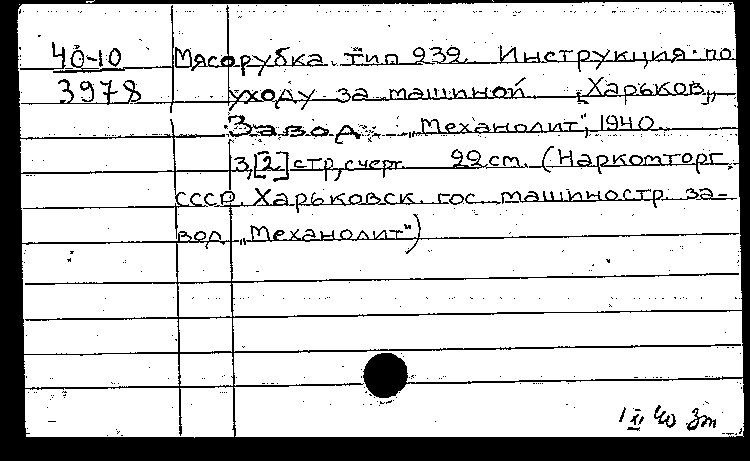 40-10 Мясорубка тип 939. Инструкция по
3978 уходу за машиной. [Харьков,
Завод „Механолит", 1940.
3,[2] стр, черт. 22 см. (Наркомторг
СССР. Харьковск. гос. машиностр. за-
вод „Механолит")
40